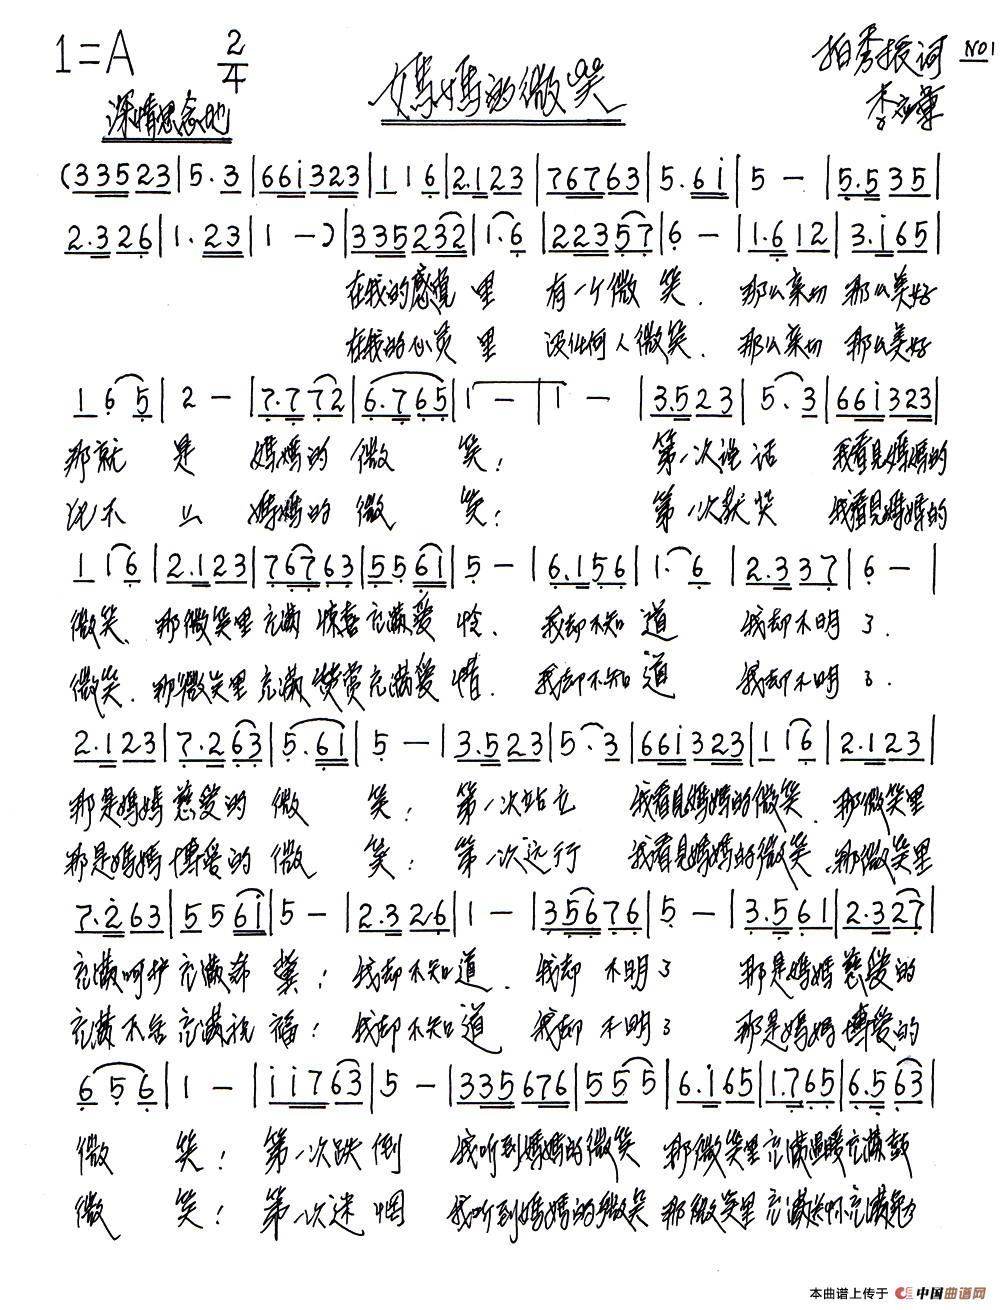 1=A 2/4 媽媽的微笑 柏秀振词 NO1
深情思念地 李
(3 3 5 2 3 | 5. 3 | 6 6 i 3 2 3 | 1 1 6 | 2. 1 2 3 | 7 6 7 6 3 | 5. 6 i | 5 — | 5. 5 3 5 |
2. 3 2 6 | 1. 2 3 | 1 —) | 3 3 5 2 3 2 | 1. 6 | 2 2 3 5 7 | 6 — | 1. 6 1 2 | 3. i 6 5 |
在我的感觉里 有一个微笑. 那么亲切 那么美好
在我的心灵里 没任何人微笑. 那么亲切 那么美好
1 6 5 | 2 — | 7. 7 7 2 | 6. 7 6 5 | 1 — | 1 — | 3. 5 2 3 | 5. 3 | 6 6 i 3 2 3 |
那就是 媽媽的微笑; 第一次说话 我看见媽媽的
比不上 媽媽的微笑; 第一次获奖 我看见媽媽的
1 1 6 | 2. 1 2 3 | 7 6 7 6 3 | 5 5 6 i | 5 — | 6. 1 5 6 | 1. 6 | 2. 3 3 7 | 6 — |
微笑. 那微笑里充满惊喜充满爱怜. 我却不知道 我却不明了.
微笑. 那微笑里充满赞赏充满爱惜. 我却不知道 我却不明了.
2. 1 2 3 | 7. 2 6 3 | 5. 6 i | 5 — | 3. 5 2 3 | 5. 3 | 6 6 i 3 2 3 | 1 1 6 | 2. 1 2 3 |
那是媽媽慈爱的微笑; 第一次站立 我看见媽媽的微笑. 那微笑里
那是媽媽博爱的微笑; 第一次远行 我看见媽媽的微笑. 那微笑里
7. 2 6 3 | 5 5 6 i | 5 — | 2. 3 2 6 | 1 — | 3 5 6 7 6 | 5 — | 3. 5 6 1 | 2. 3 2 7 |
充满呵护充满希冀; 我却不知道. 我却不明了 那是媽媽慈爱的
充满不舍充满祝福; 我却不知道 我却不明了 那是媽媽博爱的
6 5 6 | 1 — | i i 7 6 3 | 5 — | 3 3 5 6 7 6 | 5 5 5 | 6. i 6 5 | 1. 7 6 5 | 6. 5 6 3 |
微笑; 第一次跌倒 我听到媽媽的微笑 那微笑里充满温暖充满鼓
微笑; 第一次迷惘 我听到媽媽的微笑 那微笑里充满关怀充满勉
本曲谱上传于 中国曲谱网